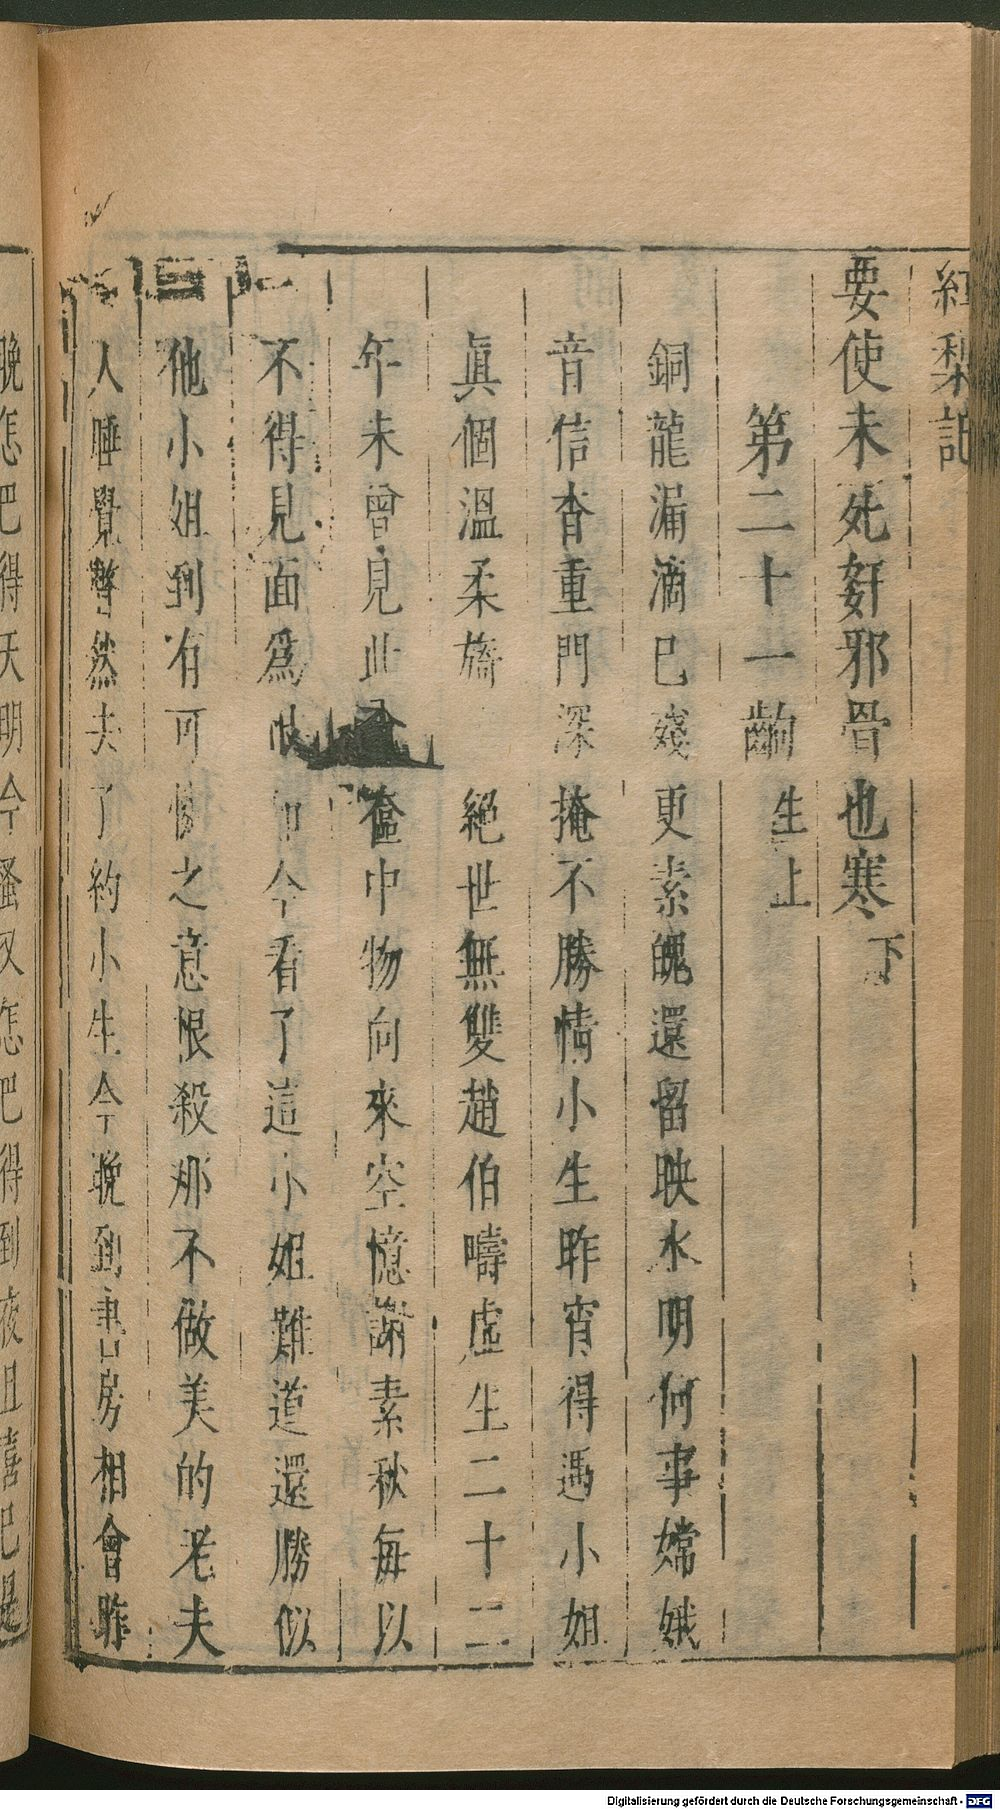 紅梨記
要使未死奸邪骨也寒下
第二十一齣生上
銅龍漏滴巳殘更素魄還留映水明何事嫦娥
音信杳重門深掩不勝情小生昨宵得遇小姐
眞個溫柔嬌 絕世無雙趙伯疇虛生二十二
年未曾見此 奩中物向來空憶謝素秋每以
不得見面爲恨如今看了這小姐難道還勝似
他小姐到有可憐之意恨殺那不做美的老夫
人睡覺 然去了約小生今晚到書房相會昨
晚怎巴得天明今蚤又怎巴得到夜且喜巴
Digitalisierung gefördert durch die Deutsche Forschungsgemeinschaft - DFG